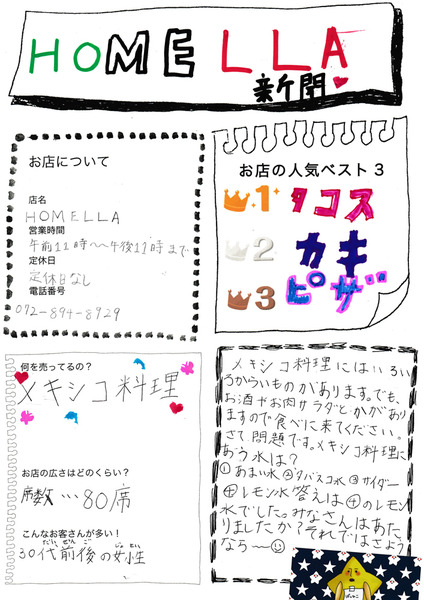 HOMELLA
新聞
お店について
店名
HOMELLA
営業時間
午前11時〜午後11時まで
定休日
定休日なし
電話番号
072-894-8929
お店の人気ベスト3
1 タコス
2 カキ
3 ピザ
何を売ってるの?
メキシコ料理
お店の広さはどのくらい?
席数…80席
こんなお客さんが多い!
だいぜんご じょせい
30代前後の女性
メキシコ料理にはいろい
ろからいものがあります。でも、
お酒やお肉サラダとかがあり
ますので食べに来てください。
さて、問題です。メキシコ料理に
あう水は?
①あまい水②タバスコ水③サイダー
④レモン水 答えは④のレモン
水でした。みなさんはあた
りましたか?それではさよう
なら〜